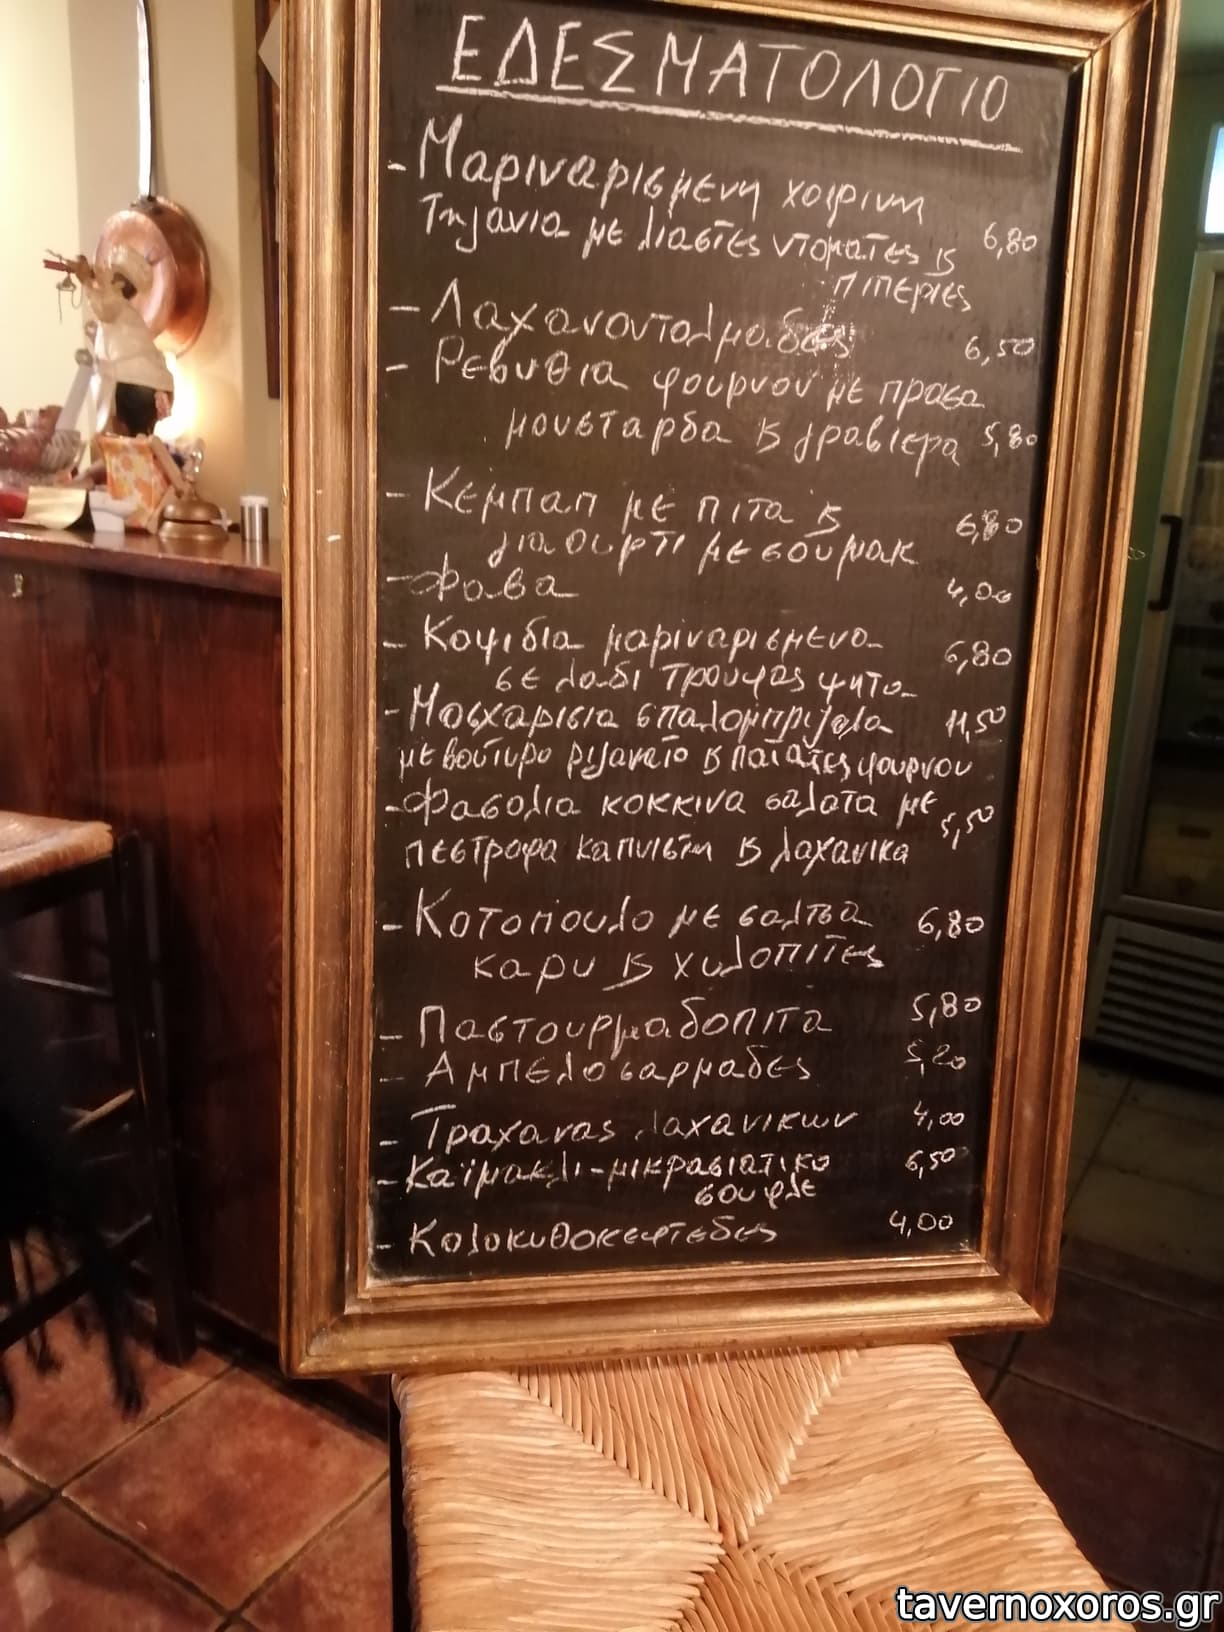 ΕΔΕΣΜΑΤΟΛΟΓΙΟ
- Μαριναρισμενη χοιρινη
Τηγανια με λιαστες ντοματες κ 6,80
πιπεριες
- Λαχανοντολμαδες 6,50
- Ρεβυθια φουρνου με πρασα
μουσταρδα κ γραβιερα 5,80
- Κεμπαπ με πιτα κ 6,80
γιαουρτι με σουμακ
- Φαβα 4,00
- Κοψιδια μαριναρισμενα 6,80
σε λαδι τρουφας ψητα
- Μοσχαρισια σπαλομπριζολα 11,50
με βουτυρο ριγανατο κ πατατες φουρνου
- Φασολια κοκκινα σαλατα με 5,50
πεστροφα καπνιστη κ λαχανικα
- Κοτοπουλο με σαλτσα 6,80
καρυ κ χυλοπιτες
- Παστουρμαδοπιτα 5,80
- Αμπελοσαρμαδες 5,20
- Τραχανας λαχανικων 4,00
- Καϊμακλι - μικρασιατικο 6,50
σουφλε
- Κολοκυθοκεφτεδες 4,00
tavernoxoros.gr